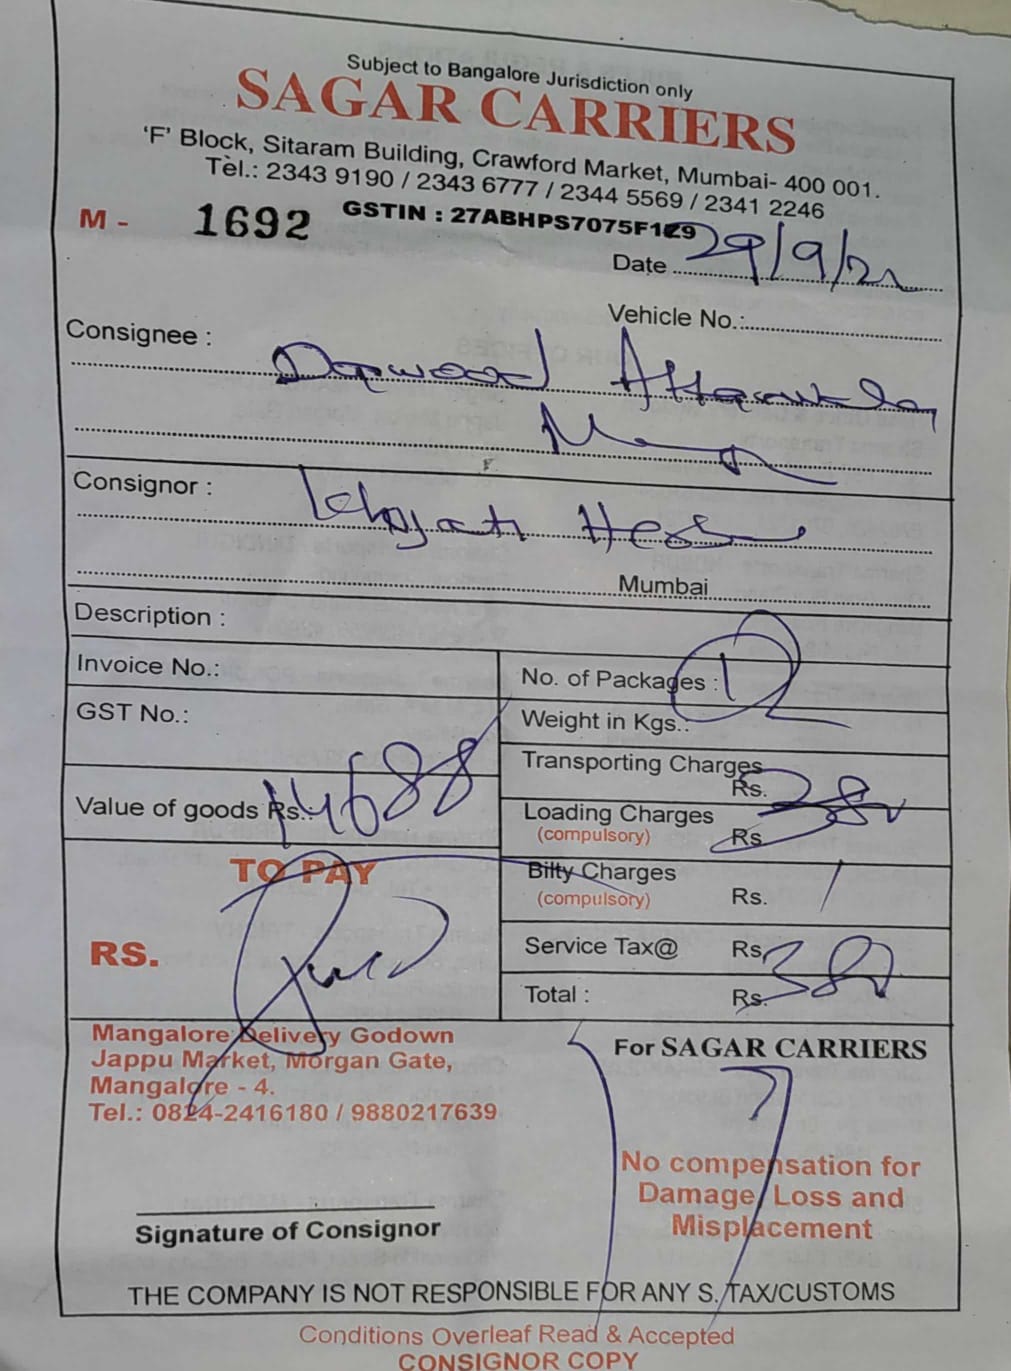 Subject to Bangalore Jurisdiction only
SAGAR CARRIERS
'F' Block, Sitaram Building, Crawford Market, Mumbai- 400 001.
Tel.: 2343 9190 / 2343 6777 / 2344 5569 / 2341 2246
GSTIN : 27ABHPS7075F1Z9
M - 1692
Date 29/9/21
Vehicle No.:
Consignee :
Dawood
Consignor :
Khyati
Mumbai
Description :
Invoice No.:
No. of Packages :
GST No.:
Weight in Kgs.:
Transporting Charges Rs. 380
Value of goods Rs.: 14688
Loading Charges
(compulsory) Rs.
TO PAY
Bilty Charges
(compulsory) Rs.
RS. Paid
Service Tax@ Rs.
Total : Rs. 380
Mangalore Delivery Godown
Jappu Market, Morgan Gate,
Mangalore - 4.
Tel.: 0824-2416180 / 9880217639
For SAGAR CARRIERS
No compensation for
Damage, Loss and
Misplacement
Signature of Consignor
THE COMPANY IS NOT RESPONSIBLE FOR ANY S. TAX/CUSTOMS
Conditions Overleaf Read & Accepted
CONSIGNOR COPY